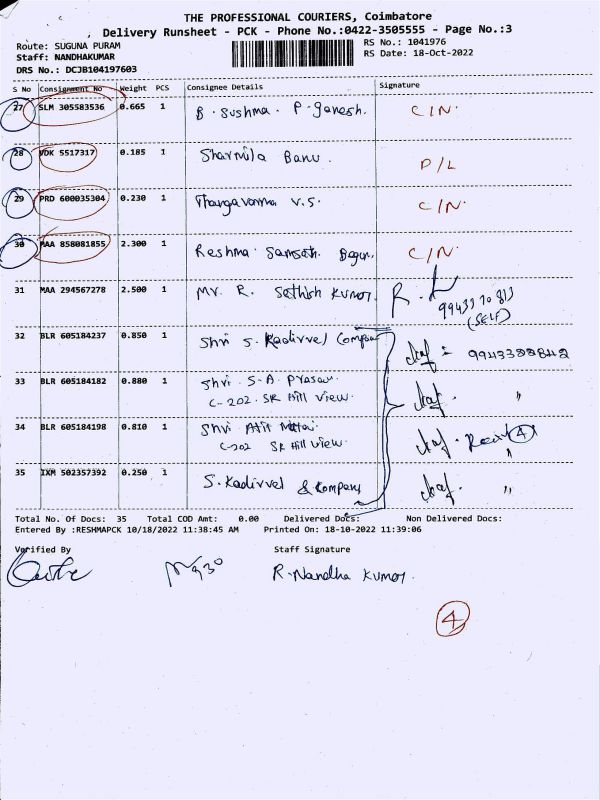 THE PROFESSIONAL COURIERS, Coimbatore
Delivery Runsheet - PCK - Phone No.:0422-3505555 - Page No.:3
Route: SUGUNA PURAM
Staff: NANDHAKUMAR
DRS No.: DCJB104197603
RS No.: 1041976
RS Date: 18-Oct-2022
S No Consignment No Weight PCS Consignee Details Signature
27 SLM 305583536 0.665 1 B. Sushma. P. Ganesh. C/N.
28 VDK 5517317 0.185 1 Sharmila Banu. P/L
29 PRD 600035304 0.230 1 Thangavamma V.S. C/N.
30 MAA 858081855 2.300 1 Reshma Samsath Begum. C/N.
31 MAA 294567278 2.500 1 Mr. R. Sathish Kumar.
(SELF)
32 BLR 605184237 0.850 1 Shri S. Kadivvel
33 BLR 605184182 0.880 1 Shri. S.A. Prasav. "
C-202. SR Hill View.
34 BLR 605184198 0.810 1 Shri 4
C-202 SR Hill View. "
35 IXM 502357392 0.250 1 S. Kadivvel & Kompany "
Total No. Of Docs: 35 Total COD Amt: 0.00 Delivered Docs: Non Delivered Docs:
Entered By :RESHMAPCK 10/18/2022 11:38:45 AM Printed On: 18-10-2022 11:39:06
Verified By Staff Signature
R. Nandha Kumar.
4